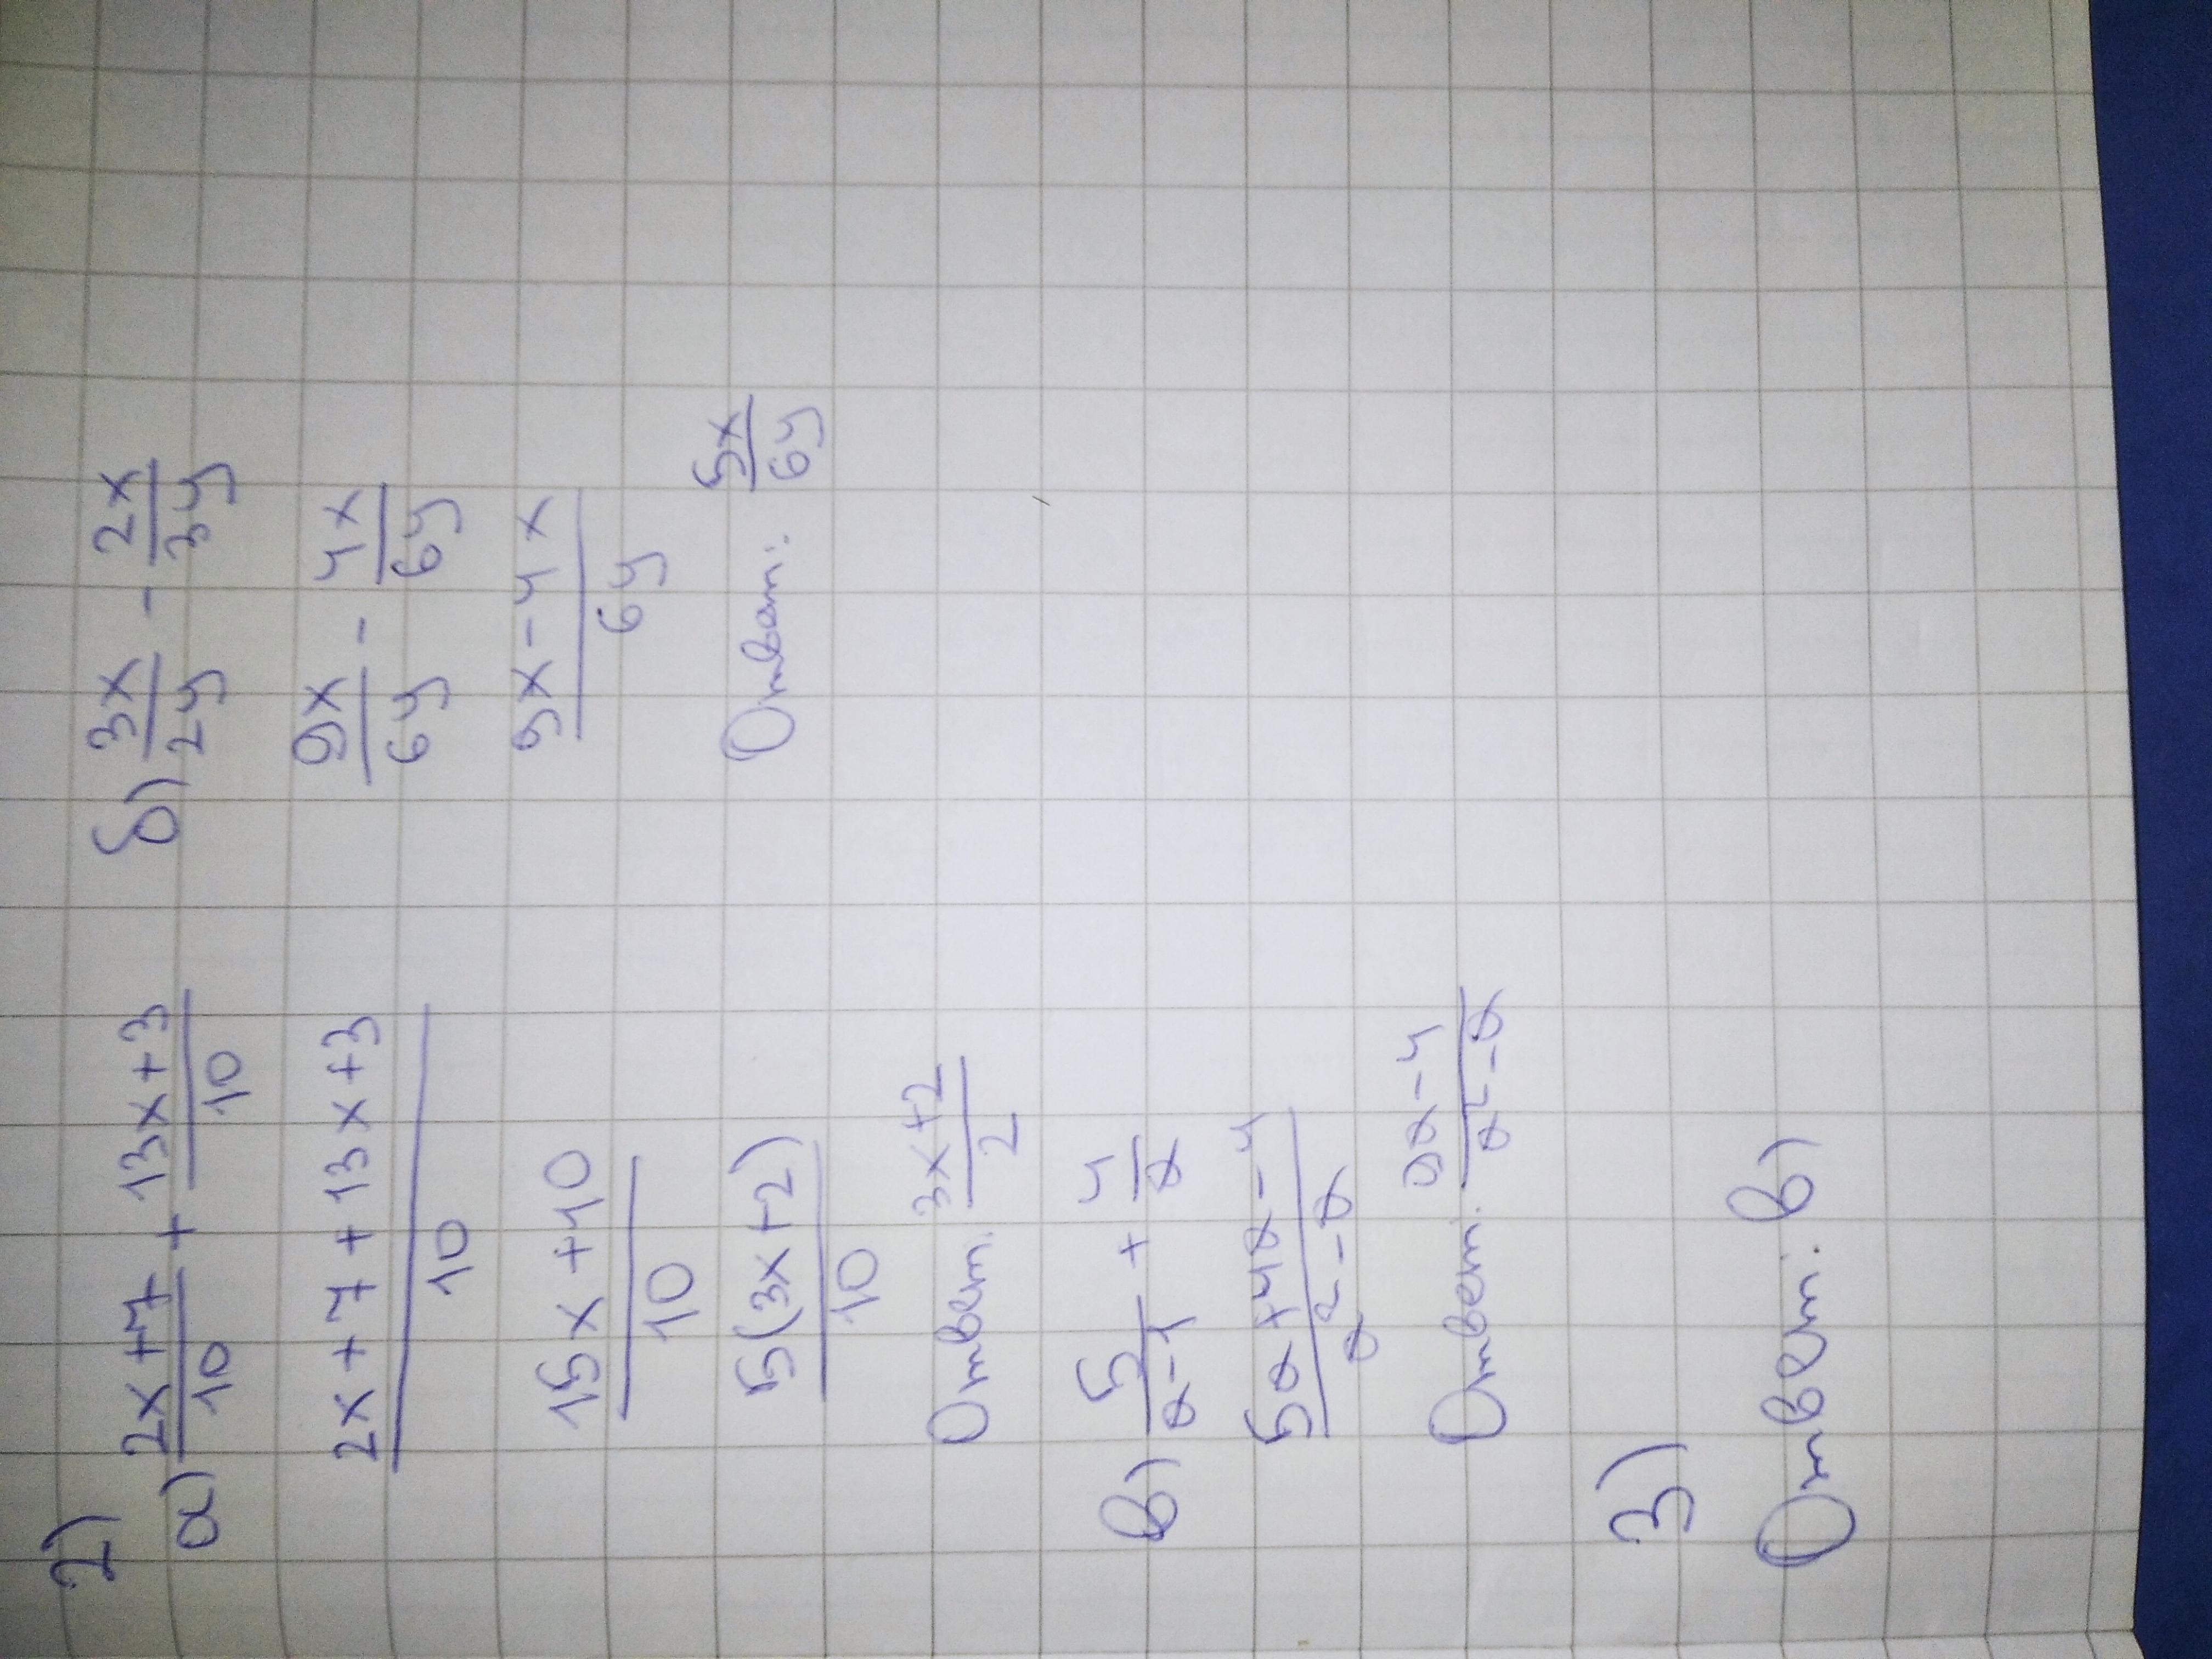 2)
а) (2x+7)/10 + (13x+3)/10
(2x+7+13x+3)/10
(15x+10)/10
5(3x+2)/10
Ответ. (3x+2)/2
б) 3x/2y - 2x/3y
9x/6y - 4x/6y
(9x-4x)/6y
Ответ: 5x/6y
в) 5/(a-1) + 4/a
(5a+4a-4)/(a²-a)
Ответ. (9a-4)/(a²-a)
3)
Ответ: в)